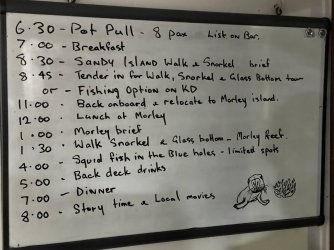 6.30 - Pot Pull - 8 pax List on Bar.
7.00 - Breakfast
8.30 - SANDY ISLAND Walk & Snorkel brief
8.45 - Tender in for Walk, Snorkel & Glass Bottom tour
or - Fishing Option on KD
11.00 - Back onboard & relocate to Morley island.
12.00 - Lunch at Morley
1.00 - Morley brief
1.30 - Walk Snorkel & Glass bottom - Morley Reef.
4.00 - Squid fish in the Blue holes - limited spots
5.00 - Back deck drinks
7.00 - Dinner
8.00 - Story time & Local movies